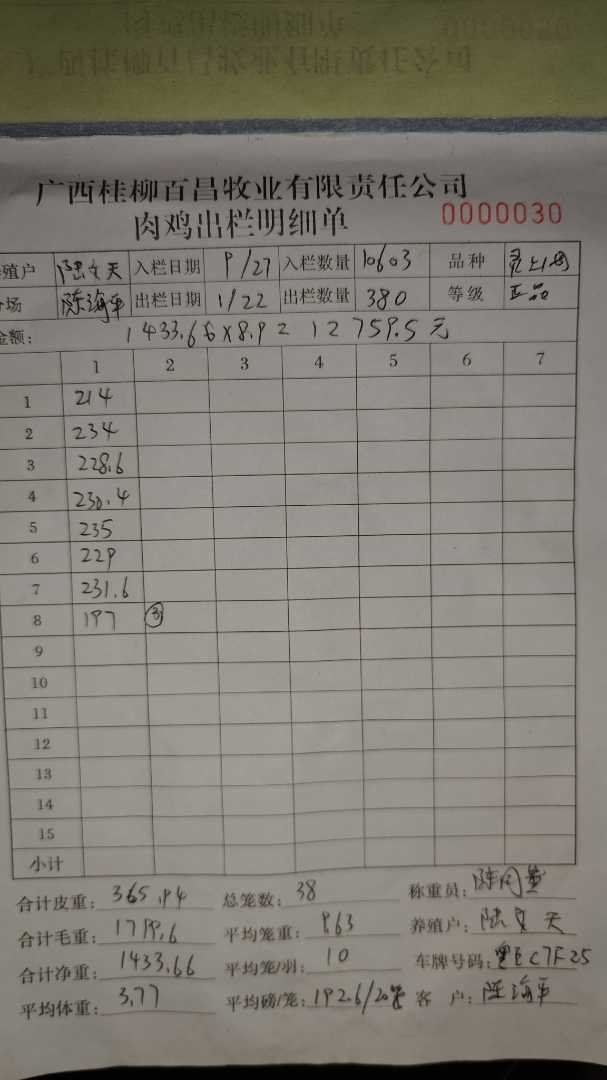 广西桂柳百昌牧业有限责任公司
肉鸡出栏明细单 0000030
殖户 陆文天 入栏日期 9/27 入栏数量 10603 品种
场 陈海平 出栏日期 1/22 出栏数量 380 等级 正品
金额: 1433.66×8.9= 12759.5元
1 2 3 4 5 6 7
1 214
2 234
3 228.6
4 230.4
5 235
6 229
7 231.6
8 197 ③
9
10
11
12
13
14
15
小计
合计皮重: 365.94 总笼数: 38 称重员:
合计毛重: 1799.6 平均笼重: 9.63 养殖户: 陆文天
合计净重: 1433.66 平均笼/羽: 10 车牌号码: EC7F25
平均体重: 3.77 平均磅/笼: 192.6/20 客 户: 陈海平